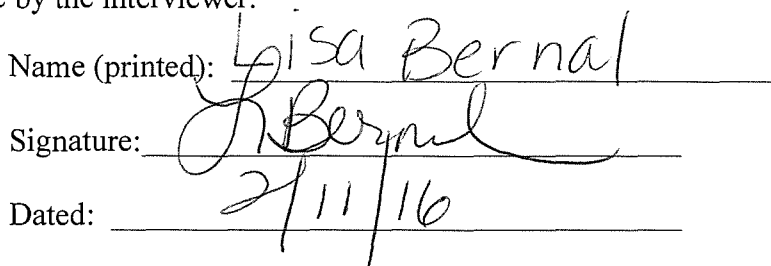 by the interviewer.
Name (printed): Lisa Bernal
Signature: L Bernal
Dated: 2/11/16